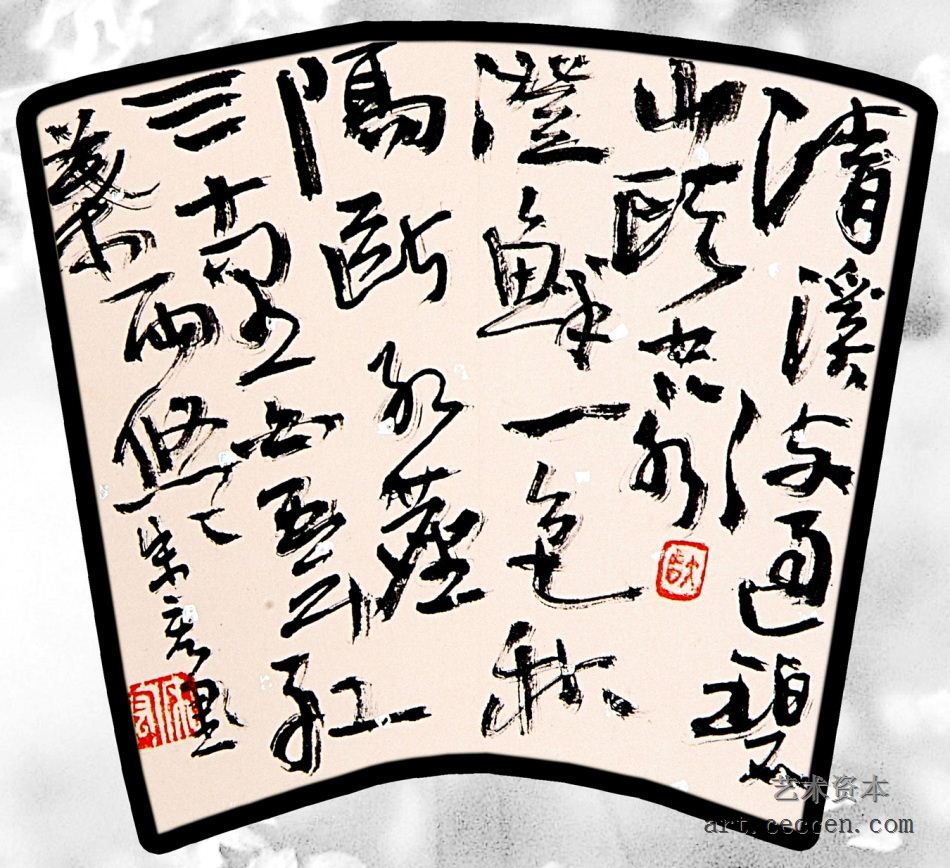 清溪流過碧
山頭空水
澄鮮一色秋
隔斷紅塵
三十里白雲紅
葉兩悠悠
艺术资本
art.ceccen.com